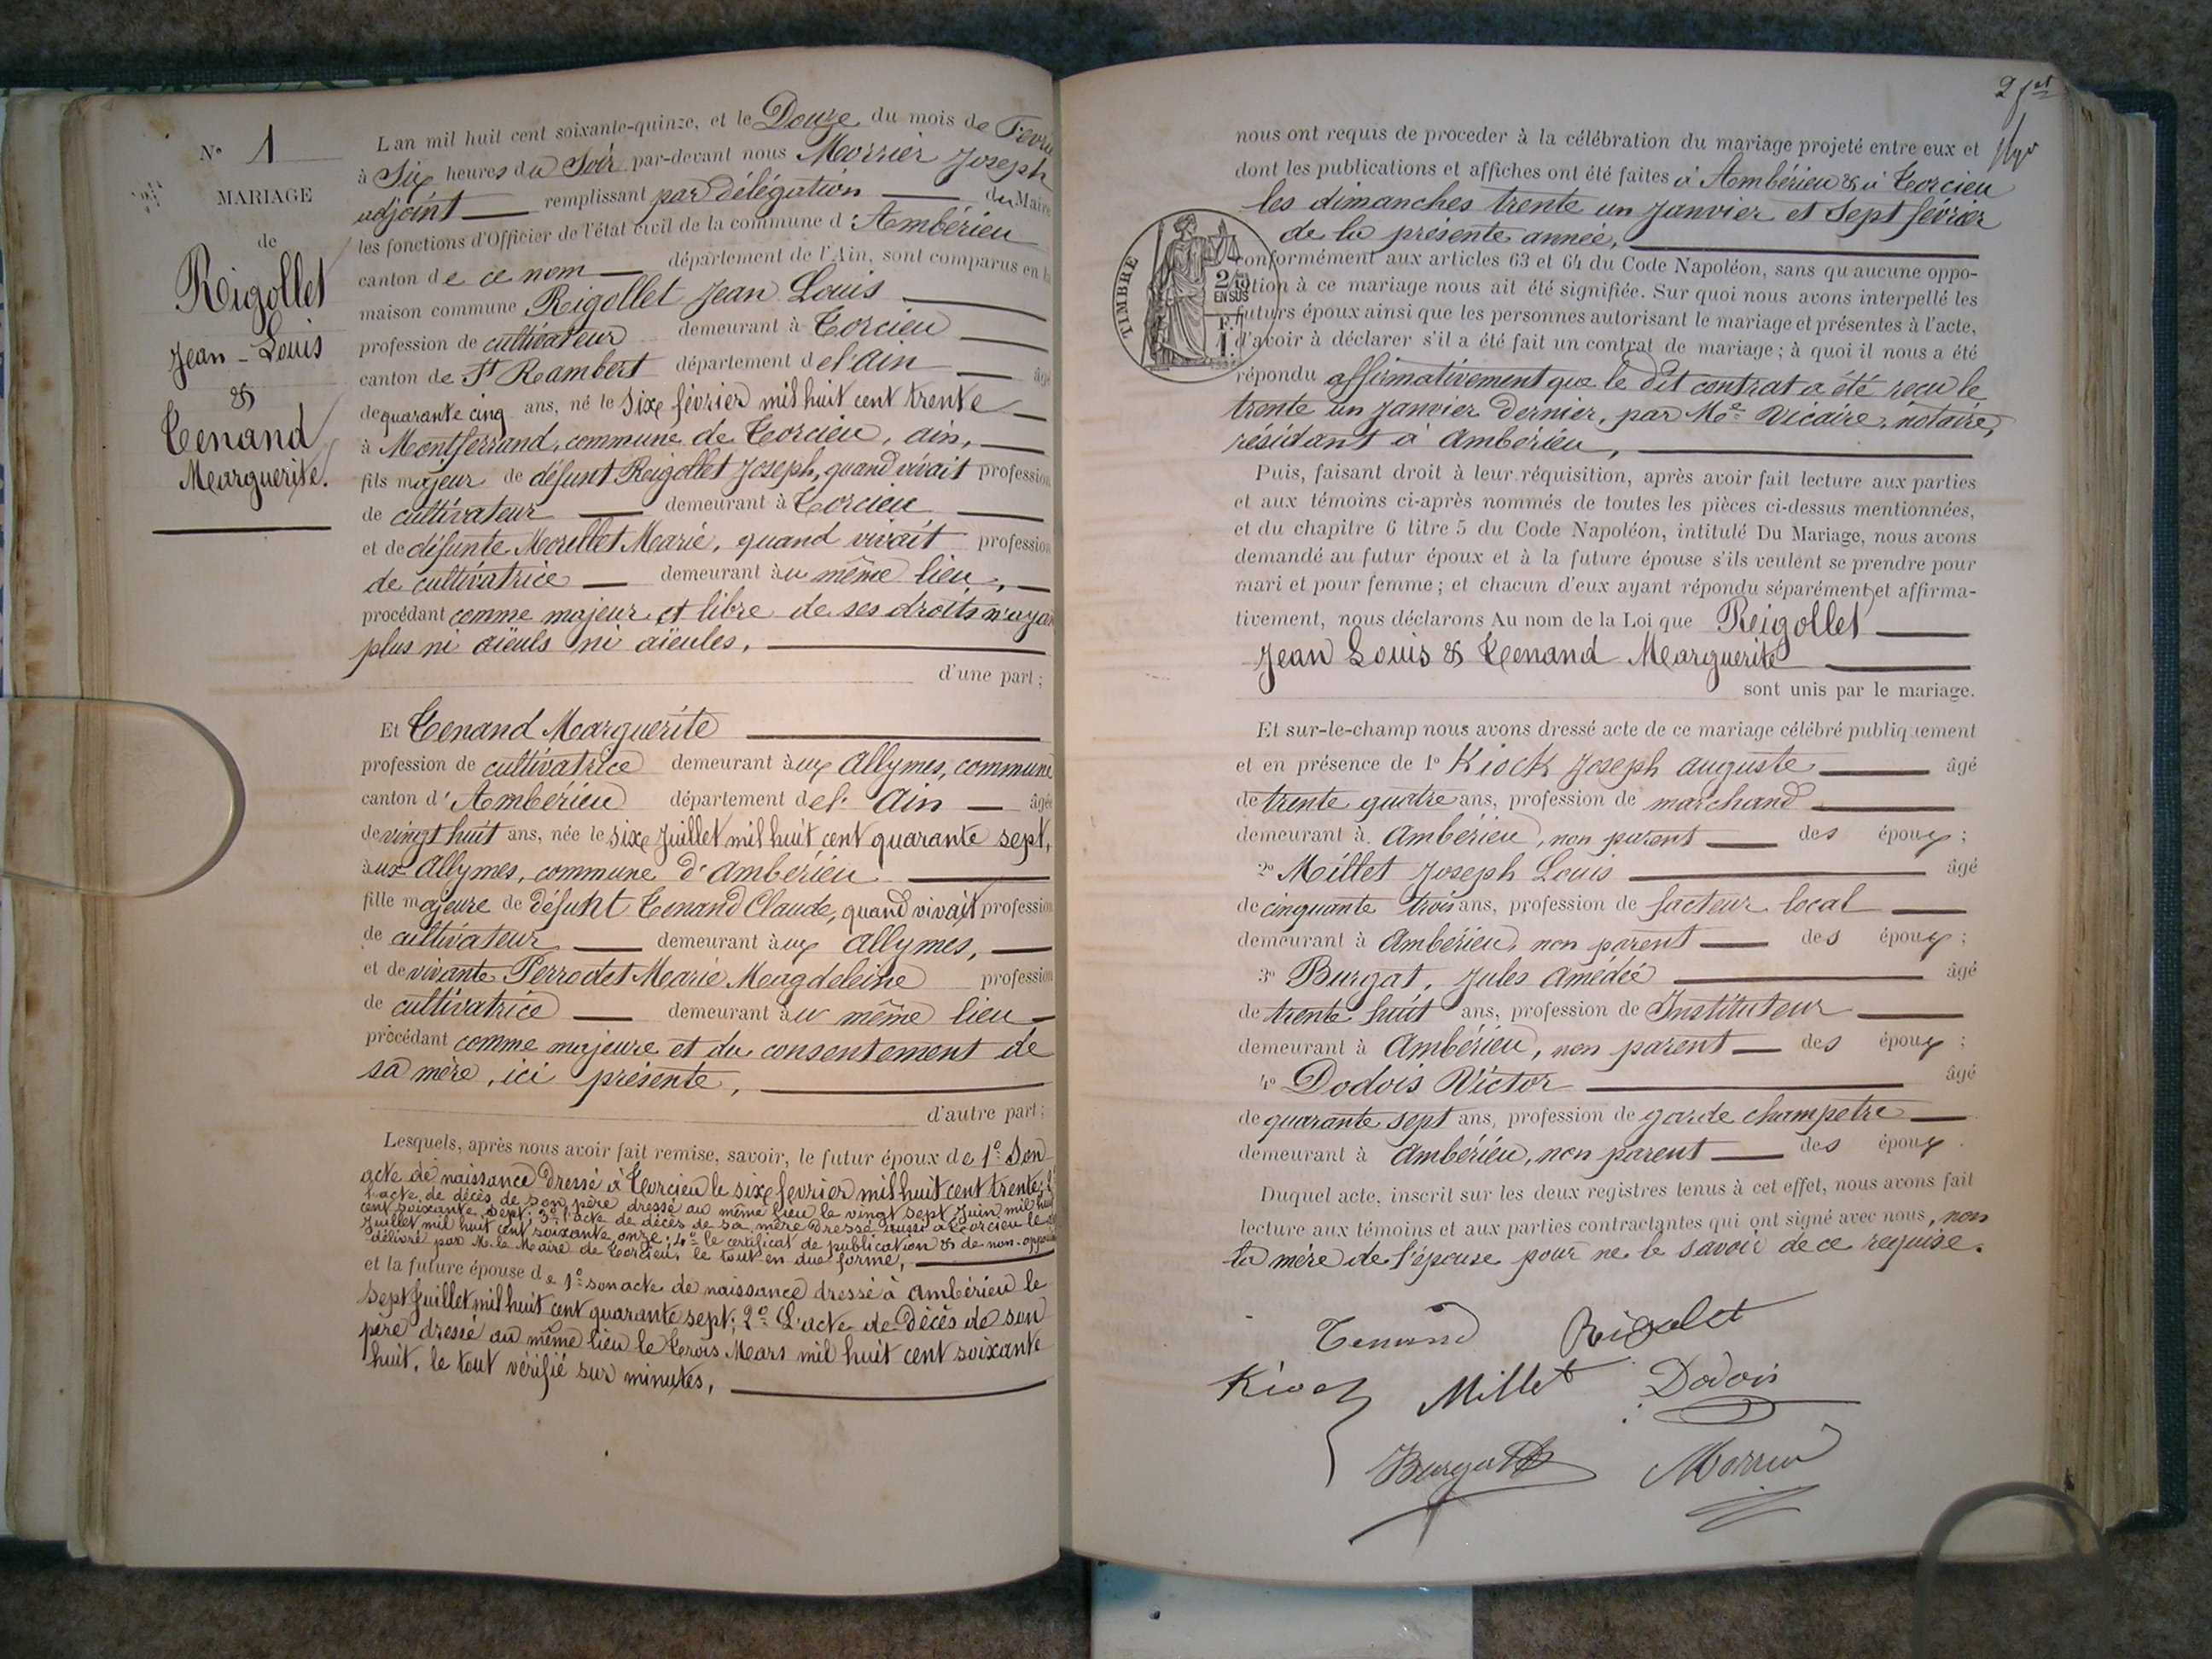 N° 1
MARIAGE
de
Rigollet
Jean-Louis
&
Tenand
Marguerite.
L'an mil huit cent soixante-quinze, et le Douze du mois de Févri
à Six heures du Soir par-devant nous Morrier Joseph
adjoint remplissant par délégation du Maire
les fonctions d'Officier de l'état civil de la commune d'Ambérieu
canton de ce nom département de l'Ain, sont comparus en la
maison commune Rigollet Jean Louis
profession de cultivateur demeurant à Torcieu
canton de St Rambert département de l'ain âgé
de quarante cinq ans, né le Six février mil huit cent trente
à Montferrand, commune de Torcieu, ain,
fils majeur de défunt Rigollet Joseph, quand vivait profession
de cultivateur demeurant à Torcieu
et de défunte Morellet Marie, quand vivait profession
de cultivatrice demeurant au même lieu,
procédant comme majeur et libre de ses droits n'ayan
plus ni aïeuls ni aïeules,
d'une part;
Et Tenand Marguerite
profession de cultivatrice demeurant aux allymes, commune
canton d'Ambérieu département de l'ain âgée
de vingt huit ans, née le six Juillet mil huit cent quarante sept,
aux allymes, commune d'ambérieu
fille majeure de défunt Tenand Claude, quand vivait profession
de cultivateur demeurant aux allymes,
et de vivante Perrodet Marie Magdeleine profession
de cultivatrice demeurant au même lieu
procédant comme majeure et du consentement de
sa mère, ici présente,
d'autre part;
Lesquels, après nous avoir fait remise, savoir, le futur époux de 1° Son
acte de naissance dressé à Torcieu le six fevrier mil huit cent trente;
l'acte de décès de son père dressé au même lieu le vingt sept Juin mil huit
cent soixante sept; 3° l'acte de décès de sa mère dressé aussi à Torcieu le
Juillet mil huit cent soixante onze; 4° le certificat de publication & de non-oppositi
délivré par M. le Maire de Torcieu, le tout en due forme,
et la future épouse de 1° son acte de naissance dressé à ambérieu le
Sept Juillet mil huit cent quarante sept; 2° L'acte de Décès de son
père dressé au même lieu le trois Mars mil huit cent soixante
huit, le tout vérifié sur minutes,
2
nous ont requis de proceder à la célébration du mariage projeté entre eux et
dont les publications et affiches ont été faites à Ambérieu & à Torcieu
les dimanches trente un Janvier et Sept février
de la présente année,
TIMBRE
2/10
EN SUS
F.
1.
conformément aux articles 63 et 64 du Code Napoléon, sans qu'aucune oppo-
sition à ce mariage nous ait été signifiée. Sur quoi nous avons interpellé les
futurs époux ainsi que les personnes autorisant le mariage et présentes à l'acte,
d'avoir à déclarer s'il a été fait un contrat de mariage; à quoi il nous a été
répondu affirmativement que le dit contrat a été reçu le
trente un Janvier dernier, par Me Vicaire, notaire,
résidant à ambérieu,
Puis, faisant droit à leur réquisition, après avoir fait lecture aux parties
et aux témoins ci-après nommés de toutes les pièces ci-dessus mentionnées,
et du chapitre 6 titre 5 du Code Napoléon, intitulé Du Mariage, nous avons
demandé au futur époux et à la future épouse s'ils veulent se prendre pour
mari et pour femme; et chacun d'eux ayant répondu séparément et affirma-
tivement, nous déclarons Au nom de la Loi que Rigollet
Jean Louis & Tenand Marguerite
sont unis par le mariage.
Et sur-le-champ nous avons dressé acte de ce mariage célébré publiquement
et en présence de 1° Kiock Joseph auguste âgé
de trente quatre ans, profession de marchand
demeurant à Ambérieu, non parent des époux;
2° Millet Joseph Louis âgé
de cinquante trois ans, profession de facteur local
demeurant à Ambérieu, non parent des époux;
3° Burgat, Jules Amédée âgé
de trente huit ans, profession de Instituteur
demeurant à Ambérieu, non parent des époux;
4° Dodois Victor âgé
de quarante sept ans, profession de garde champetre
demeurant à Ambérieu, non parent des époux.
Duquel acte, inscrit sur les deux registres tenus à cet effet, nous avons fait
lecture aux témoins et aux parties contractantes qui ont signé avec nous, non
la mère de l'épouse pour ne le savoir de ce requise.
Tenand Rigolet
Kiock Millet Dodois
Burgat Morrier